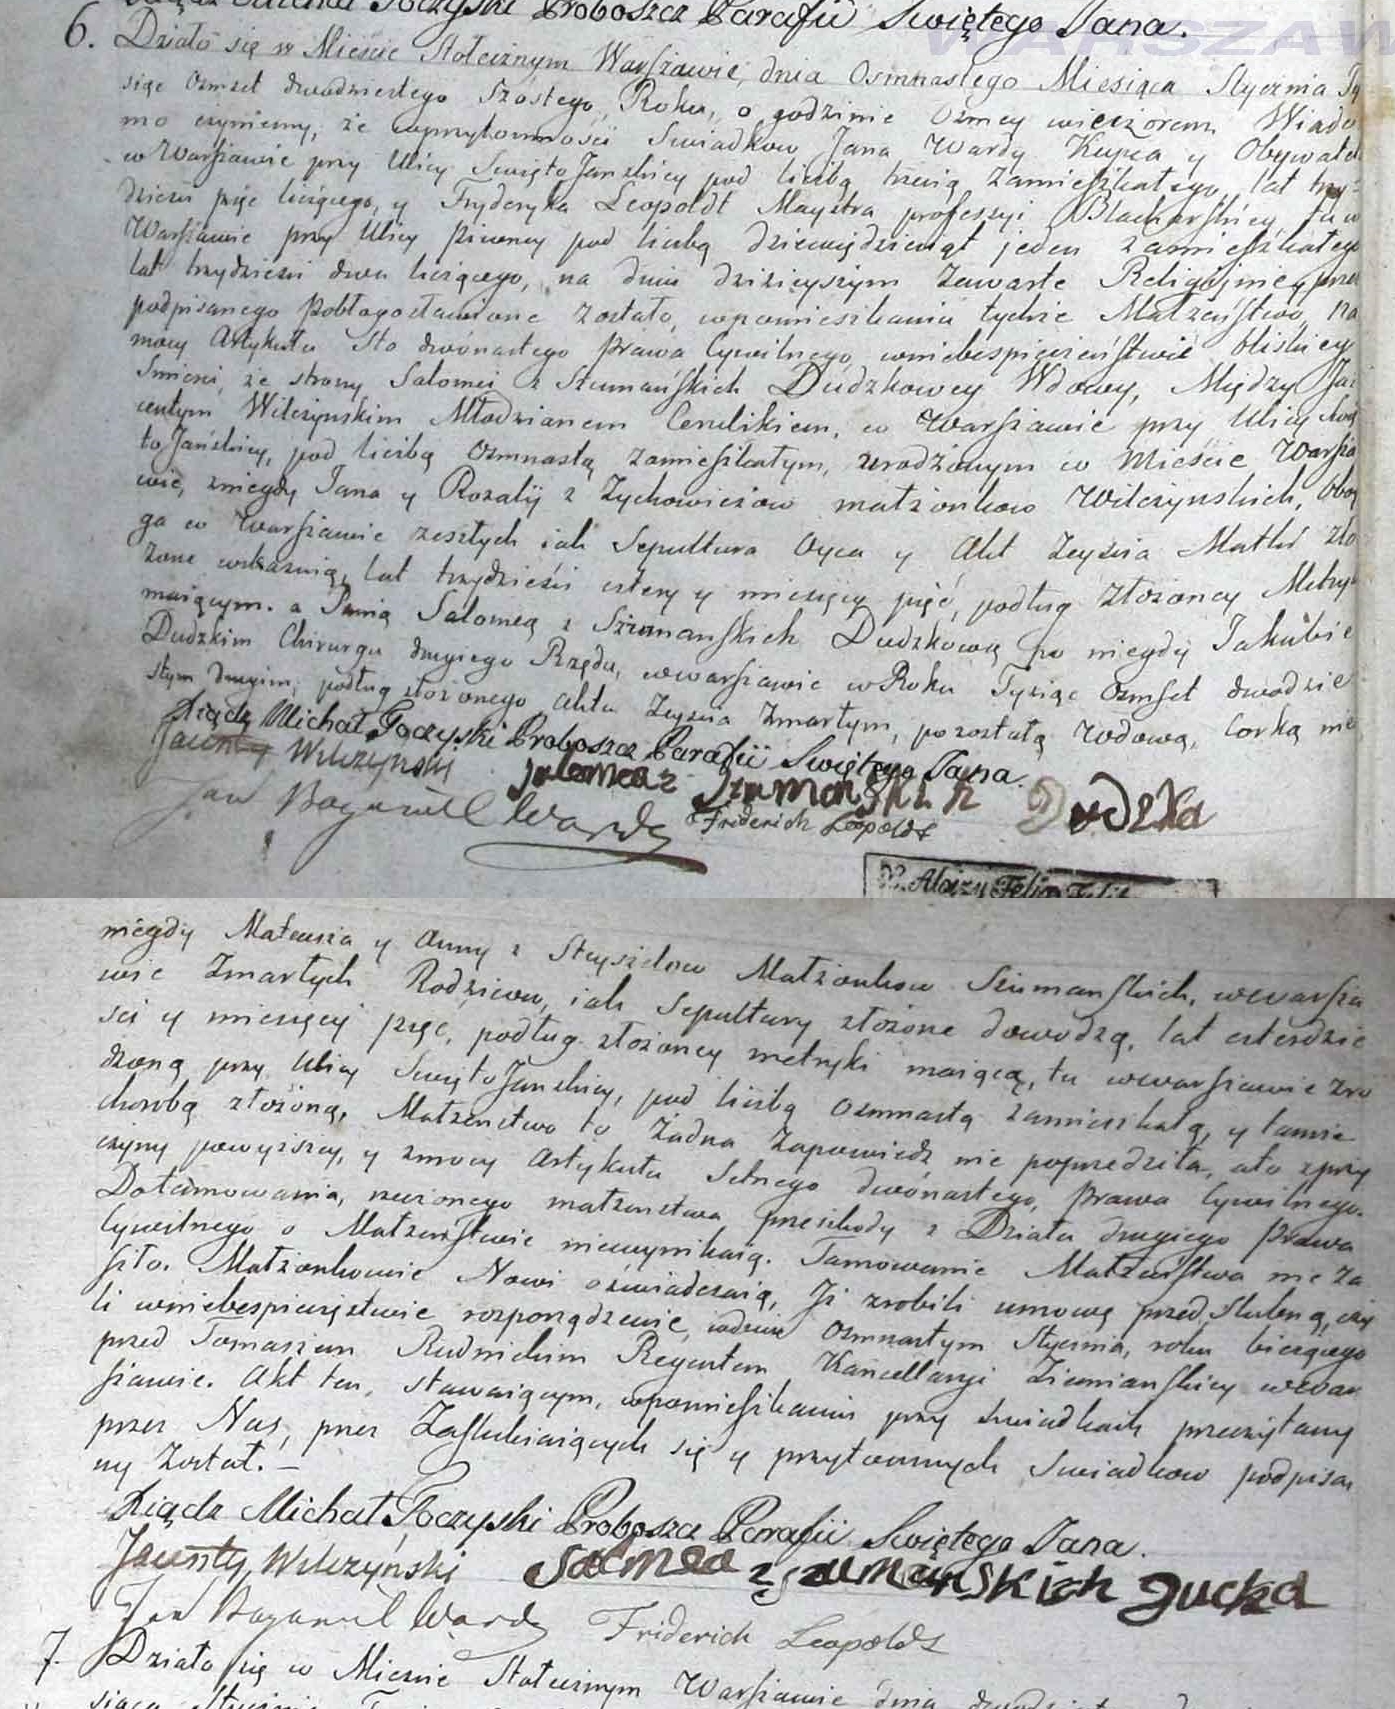 Xiądz Michał Toczyski Proboszcz Parafii Swiętego Jana.
WARSZAW
6. Działo się w Mieście Stołecznym Warszawie, dnia Osmnastego Miesiąca Stycznia Ty
siąc Osmset dwudziestego Szóstego, Roku, o godzinie Osmey wieczorem Wiado
mo czyniemy, że wprzytomności Swiadkow Jana Wardy Kupca y Obywatela
w Warszawie przy Ulicy SwiętoJanskiey pod liczbą trzecią Zamieszkałego, lat trzy-
dzieści pięć liczącego, y Fryderyka Leopoldt Maystra professyi Blacharskiey tu w
Warszawie przy Ulicy Piwney pod liczbą dziewiędziesiąt jeden zamieszkałego
lat trzydzieści dwa liczącego, na dniu dzisieyszym Zawarte Religijnie, przez
podpisanego Pobłogosławione Zostało, wpomieszkaniu tychże Małżeństwo, na
mocy Artykułu Sto dwónastego Prawa Cywilnego, wniebespieczeństwie bliskiey
Smierci, ze strony Salomei z Szumańskich Dudzkowey Wdowy, Między Ja-
centym Wilczynskim Młodzianem Cerulikiem, w Warszawie przy Ulicy Swię
toJańskiey, pod liczbą Osmnastą zamieszkałym, urodzonym w Mieście Warsza
wie, zniegdy Jana y Rozalij z Zychowiczow małżonkow Wilczynskich, Oboy
ga w Warszawie zeszłych iak Sepultura Oyca y Akt Zeyścia Matki zło
żone wskazuią, lat trzydzieści cztery y miesięcy pięć, podług Złożoney Metryki
maiącym. a Panią Salomeą z Szumanskich Dudzkową po niegdy Jakóbie
Dudzkim Chirurgu drugiego Rzędu, wwarszawie w Roku Tysiąc Osmset dwudzie
stym drugim, podług złożonego Aktu Zeyscia Zmarłym, pozostałą Wdową, Corką nie
Xiądz Michał Toczyski Proboszcz Parafii Swiętego Jana
Jacenty Wilczyński
Salomea z Szumanskich Dudzka
Jan Bogumił Warda Friderich Leopoldt
niegdy Mateusza y Anny z Małżonkow Szumanskich, wwarsza
wie Zmarłych Rodzicow, iak Sepultury złożone dowodzą, lat czterdzie
ści y miesięcy pięć, podług złożoney metryki maiącą, tu wwarszawie zro
dzoną przy Ulicy SwiętoJanskiey, pod liczbą Osmnastą zamieszkałą, y tamże
chorobą złożoną, Małżenstwo to Żadna Zapowiedź nie poprzedziła, ato zprzy
czyny powyższey, y zmocy Artykułu Setnego dwónastego, Prawa Cywilnego.
Do tamowania, rzeczonego małżenstwa przeszkody z Działu drugiego Prawa
Cywilnego o Małżeństwie niewynikaią. Tamowanie Małżeństwa nie Za
szło. Małżonkowie Nowi oświadczaią, Iż zrobili umowę przed Slubną, czy
li wniebespieczęstwie rozporządzenie, wdniu Osmnastym Stycznia, roku bieżącego
przed Tomaszem Rudnickim Regentem Kancellaryi Ziemianskiey wwar
szawie. Akt ten, stawaiącym, wpomieszkaniu przy swiadkach przeczytany
przez Nas, przez Zaslubiaiących się y przytomnych Swiadkow podpisa
ny Został. –
Xiądz Michał Toczyski Proboszcz Parafii Swiętego Jana.
Jacenty Wilczyński Salmea z Szumanskich Ducka
Jan Bogumił Warda Friderich Leopoldt
7. Działo się w Miescie Stołecznym Warszawie dnia